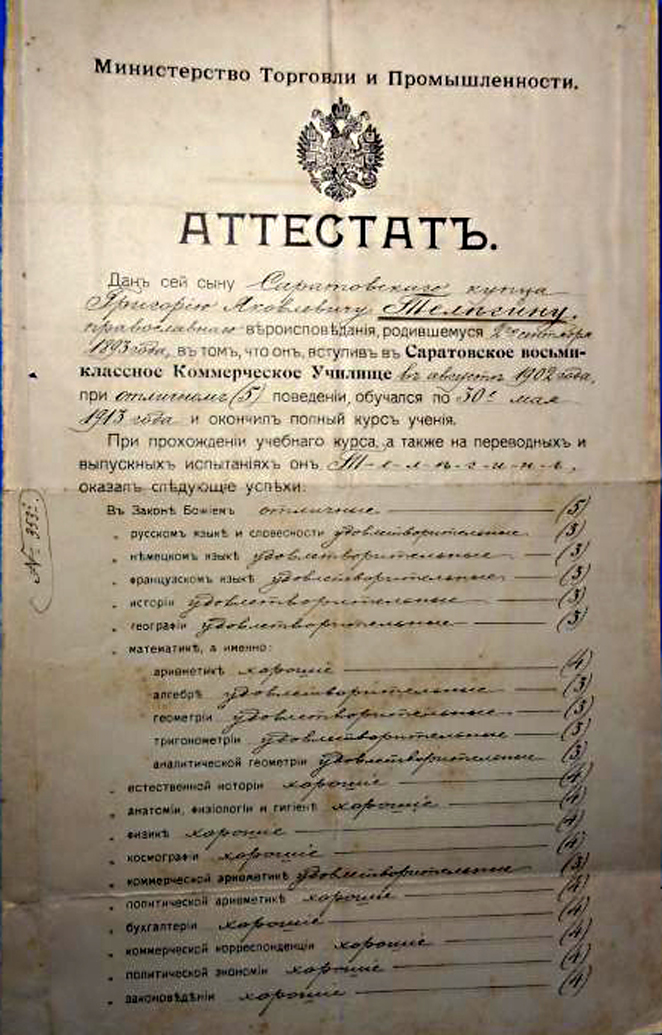 Министерство Торговли и Промышленности.
АТТЕСТАТЪ.
Данъ сей сыну Саратовскаго купца
Григорію Яковлевичу Тельгину,
православнаго вѣроисповѣданія, родившемуся 2го сентября
1893 года, въ томъ, что онъ, вступив в Саратовское восьми-
классное Коммерческое Училище въ августѣ 1902 года,
при отличномъ (5) поведеніи, обучался по 30е мая
1913 года и окончил полный курсъ ученія.
При прохожденіи учебнаго курса, а также на переводныхъ и
выпускныхъ испытаніяхъ онъ Т-е-л-ь-г-и-н-ъ,
оказалъ слѣдующіе успѣхи:
Въ Законѣ Божіемъ отличные (5)
„ русскомъ языкѣ и словесности удовлетворительные (3)
„ нѣмецкомъ языкѣ удовлетворительные (3)
„ французскомъ языкѣ удовлетворительные (3)
„ исторіи удовлетворительные (3)
„ географіи удовлетворительные (3)
„ математикѣ, а именно:
ариөметикѣ хорошіе (4)
алгебрѣ удовлетворительные (3)
геометріи удовлетворительные (3)
тригонометріи удовлетворительные (3)
аналитической геометріи удовлетворительные (3)
„ естественной исторіи хорошіе (4)
„ анатоміи, физіологіи и гигіенѣ хорошіе (4)
„ физикѣ хорошіе (4)
„ космографіи хорошіе (4)
„ коммерческой ариөметикѣ удовлетворительные (3)
„ политической ариөметикѣ хорошіе (4)
„ бухгалтеріи хорошіе (4)
„ коммерческой корреспонденціи хорошіе (4)
„ политической экономіи хорошіе (4)
„ законовѣдѣніи хорошіе (4)
№ 353.